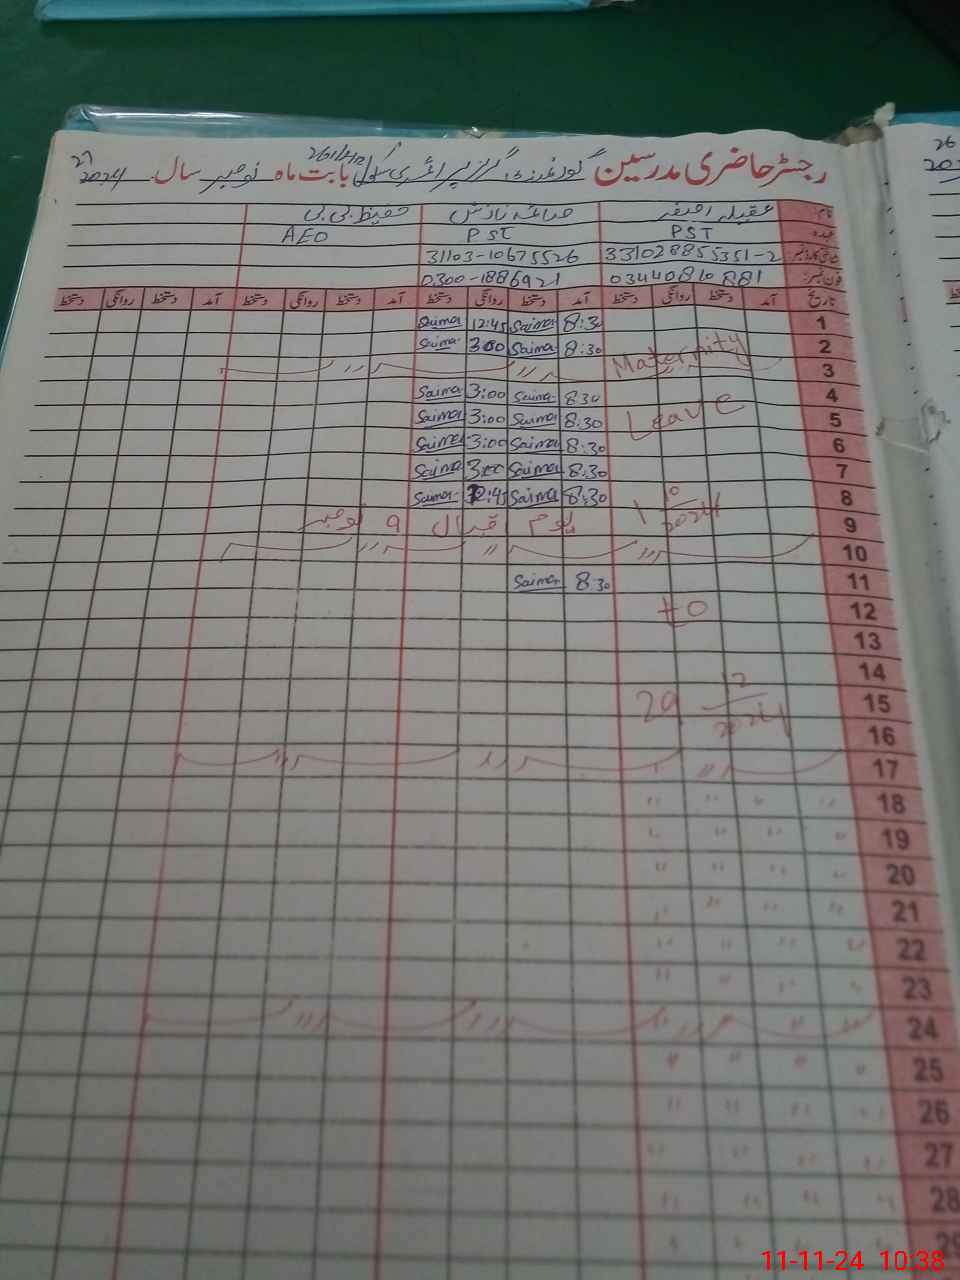 رجسٹر حاضری مدرسین گورنمنٹ گرلز پرائمری سکول بابت ماہ نومبر سال 2024
نام: عقیلہ اصغر صائمہ نازش حفیظ بی بی
عہدہ PST PST AEO
شناختی کارڈ نمبر: 331028855351-2 31103-10675526
فون نمبر: 03440810881 0300-1886921
تاریخ آمد دستخط روانگی دستخط آمد دستخط روانگی دستخط آمد دستخط روانگی دستخط آمد دستخط روانگی دستخط
1 8:30 Saima 12:45 Saima
2 Maternity 8:30 Saima 3:00 Saima
3
4 8:30 Saima 3:00 Saima
5 Leave 8:30 Saima 3:00 Saima
6 8:30 Saima 3:00 Saima
7 8:30 Saima 3:00 Saima
8 8:30 Saima 12:45 Saima
9 یوم اقبال 9 نومبر
10
11 8:30 Saima
12 to
13
14
15 29 12/2024
16
17
18
19
20
21
22
23
24
25
26
27
28
29
26
11-11-24 10:38